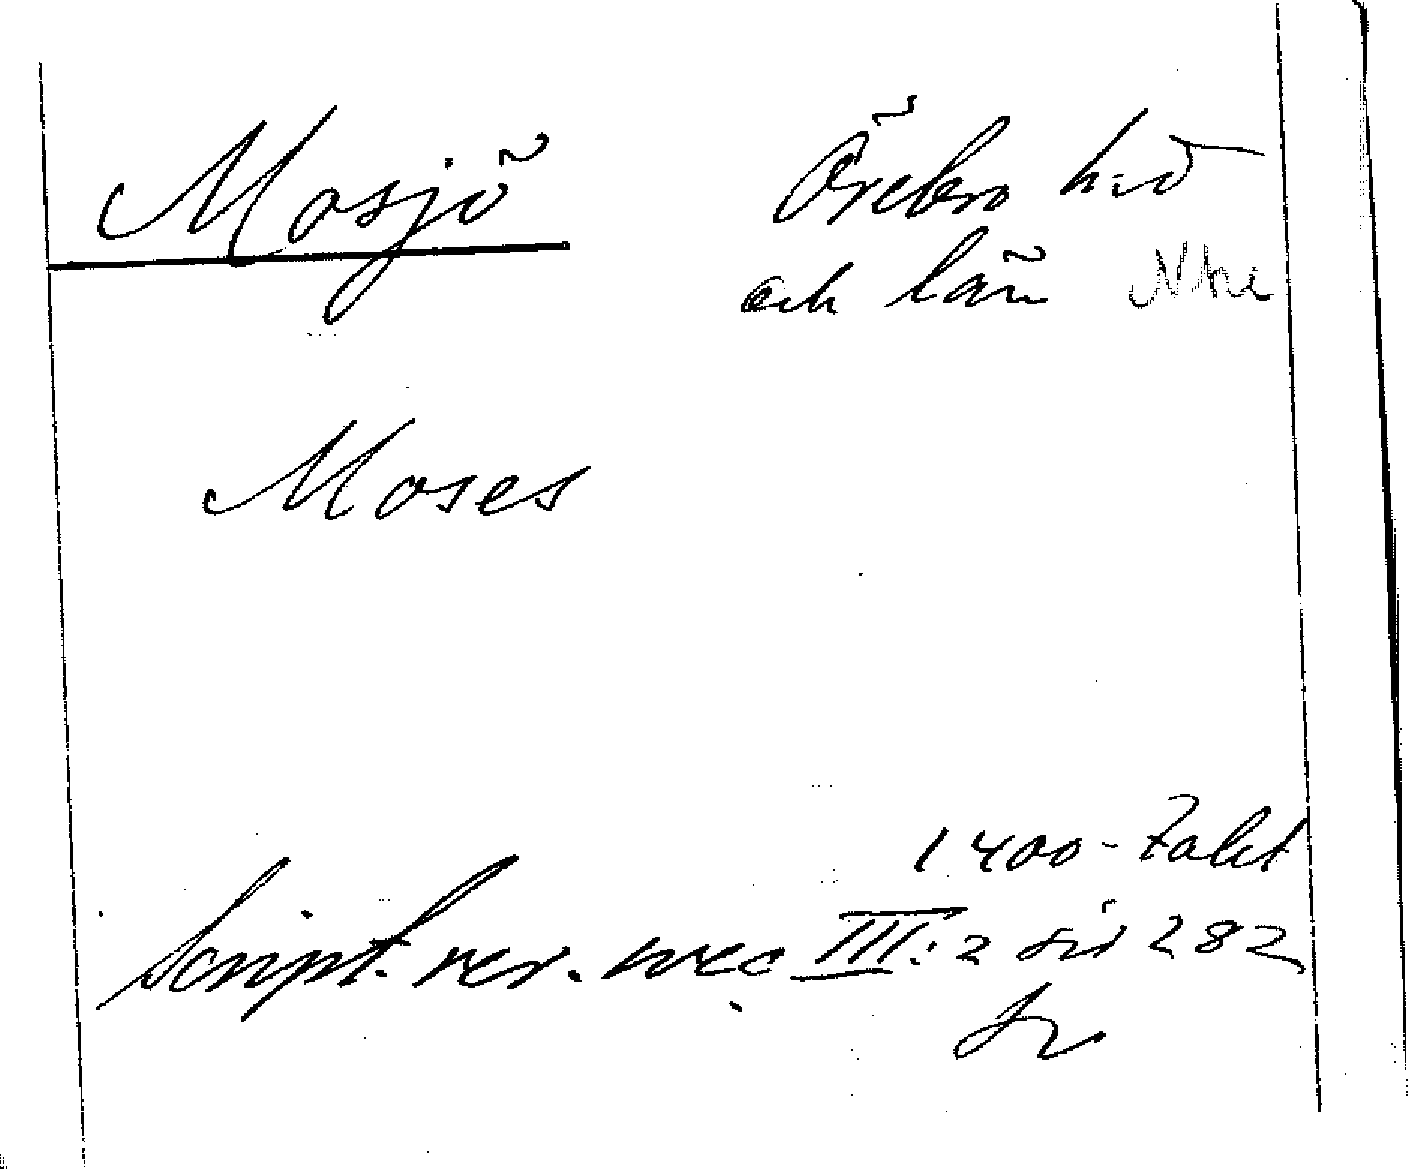 Mosjö
Örebro h:d
och län Nke
Moses
1400-talet
Script. rer. svec III: 2 sid 282